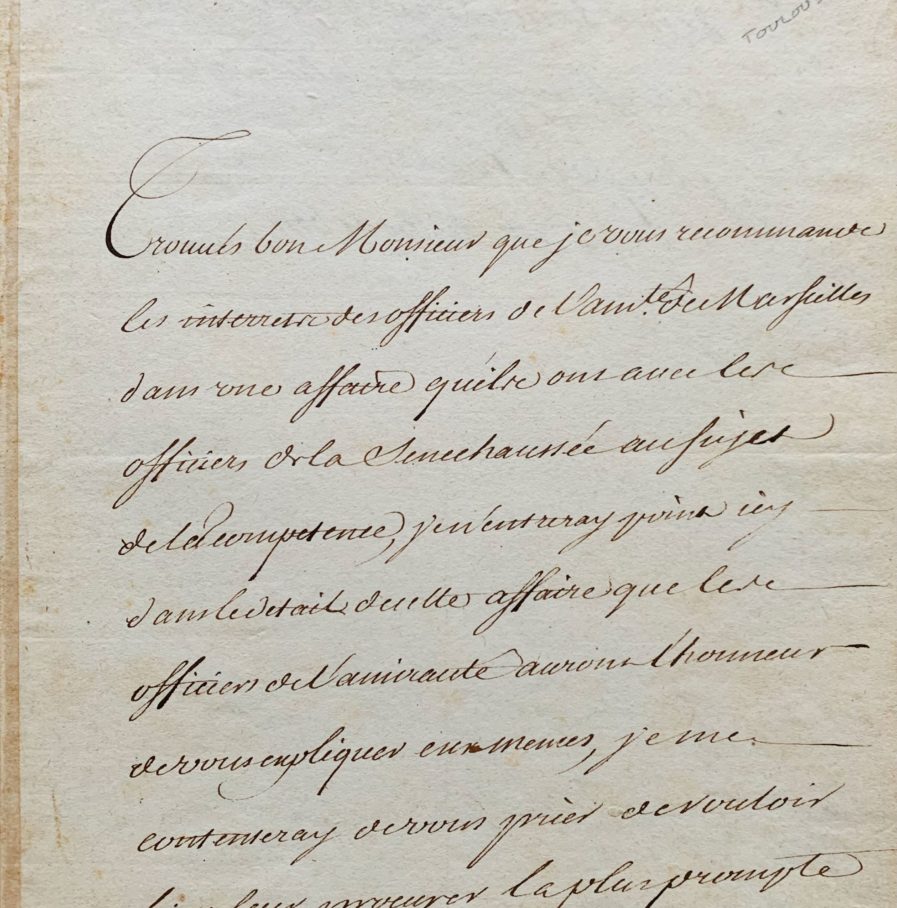 Trouués bon Monsieur que je vous recommande
les interrets des officiers de l'am.té de Marseilles
dans une affaire qu'ils ont auec les
officiers de la Senechaussée au sujet
de la competence, je n'entreray point icy
dans le detail de cette affaire que les
officiers de l'amirauté auront l'honneur
de vous expliquer eux memes, je me
contenteray de vous prier de vouloir
bien leur procurer la plus prompte